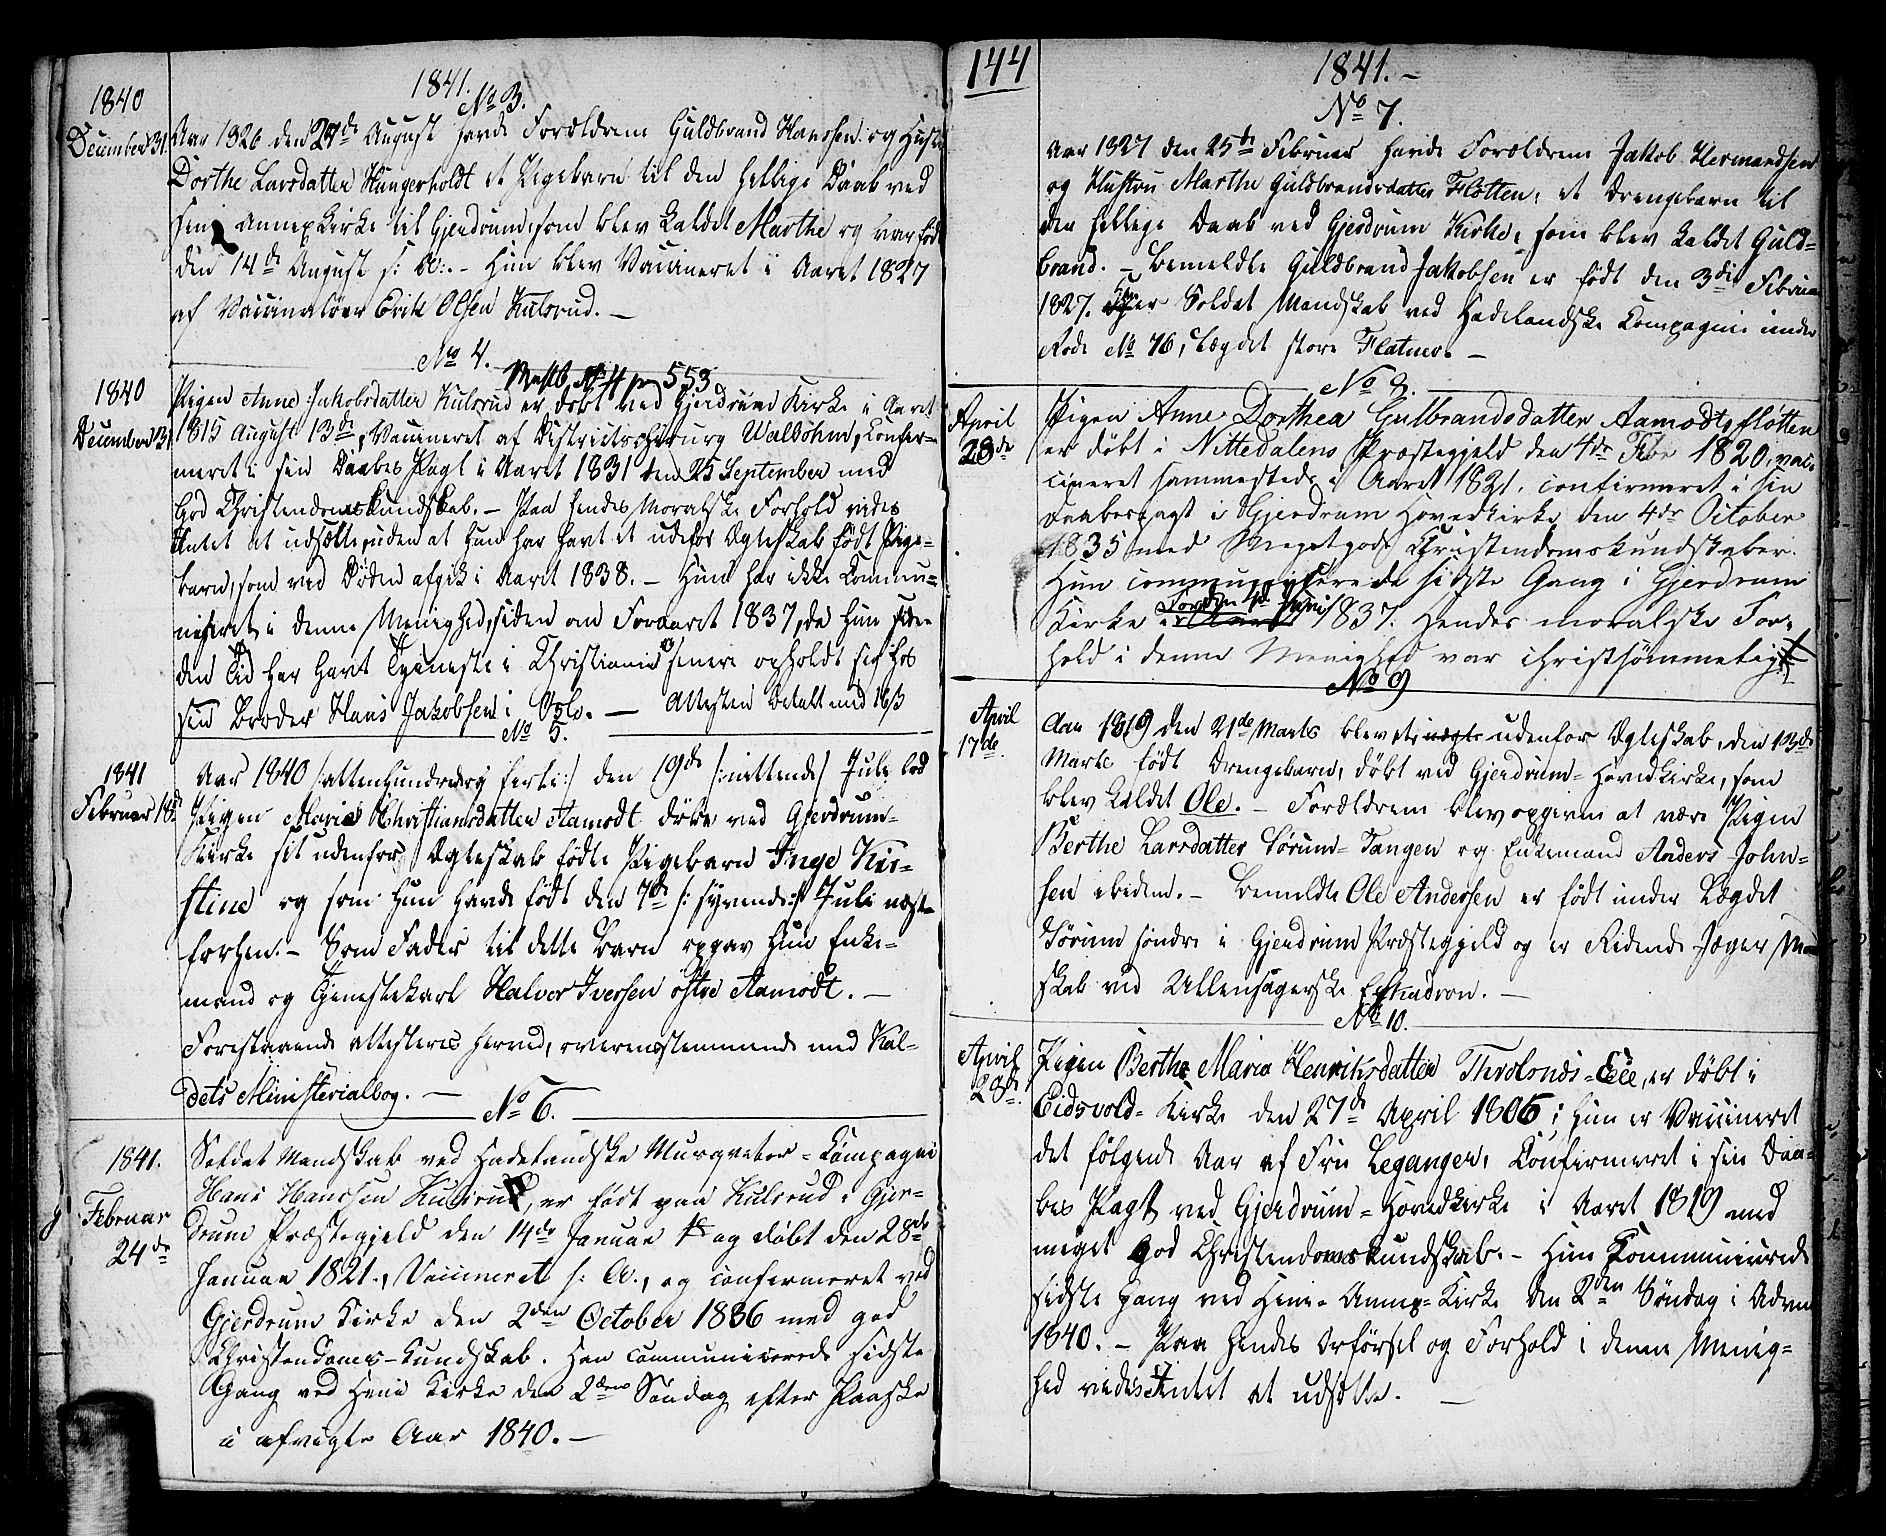 1841.
No 3.
1840
December 31.
Aar 1826 den 27de August havde Forældrene Guldbrand Hanssen og Hustru
Dorthe Larsdatter Hungerholdt et Pigebarn til den hellige Daab ved
sin Annexkirke til Gjerdrum, som blev kaldet Marthe og var født
den 14de August s: A:. - Hun blev Vaccineret i Aaret 1827
af Vaccinatøer Erik Olsen Kulsrud. —
No 4.
1840
December 31
Pigen Anne Jakobsdatter Kulsrud er døbt ved Gjerdrum Kirke i Aaret
1815 August 13de, Vaccineret af Districtschirurg Walbohm, Confir-
meret i sin Daabes Pagt i Aaret 1831 den 25 September med
God Christendomskundskab. - Paa hendes Moralske Forhold vides
Intet at udsætte, uden at hun har havt et udefor Ægteskab født Pige-
barn, som ved Døden afgik i Aaret 1838. - Hun har ikke Commu-
niseret i denne Menighed, siden om Foraaret 1837, da hun siden
den Tid har havt Tjeneste i Christiania senere opholdt sig hos
sin Broder Hans Jakobsen i Oslo. — Attesten betalt med 16 ß
No 5.
1841
Februar 18de
Aar 1840 /: attenhundrede og forti :/ den 19de /: nittende :/ Juli lod
Pigen Marie Christiansdatter Aamodt døbe ved Gjerdrum-
Kirke sit udenfor Ægteskab fødte Pigebarn Inge Kir-
stine og som hun havde født den 7de /: syvende :/ Juli næst
forhen. - Som Fader til dette Barn opgav hun Enke-
mand og Tjenestekarl Halvor Iversen østre Aamodt. —
Forestaaende attesteres herved, overensstemmende med Kal-
dets Ministerialbog. —
No 6.
1841.
Februar
24de
Soldat Mandskab ved Hadelandske Musqueter = Compagni
Hans Hanssen Kulsrud, er født paa Kulsrud i Gjer-
drum Præstegjeld den 14de Januar og døbt den 28de
Januar 1821., Vaccineret s: A., og confirmeret ved
Gjerdrum Kirke den 2den October 1836 med god
Christendoms-Kundskab. Han communicerede sidste
Gang ved Heni Kirke den 2den Søndag efter Paaske
i afvigte Aar 1840. —
144
1841. -
No 7.
Aar 1827 den 25de Februar havde Forældrene Jakob Hermandsen
og Hustru Marthe Guldbrandsdatter Fløtten, et Drengebarn til
den hellige Daab ved Gjerdrum Kirke, som blev kaldet Guld=
brand. - Bemeldte Guldbrand Jakobsen er født den 3die Februar
1827. er Soldat Mandskab ved Hadelandske Compagnie under
Rode No 76, Lægdet store Flatner. —
No 8.
April
28de
Pigen Anne Dorthea Gulbrandsdatter Aamodtsfløtten
er døbt i Nittedalens Præstegjeld den 4de Febr 1820, vac-
cineret sammesteds i Aaret 1821. confirmeret i sin
Daabespagt i Gjerdrum Hovedkirke den 4de October
1835 med Meget gode Christendomskundskaber.
Hun communiserede sidste Gang i Gjerdrum
Kirke 1837. Hendes moralske For-
hold i denne Menighed var christsømmeligt
No 9
April
17de
Aar 1819 den 21de Marts blev et udenfor Ægteskab, den 13de
Marts født Drengebarn, døbt ved Gjerdrum = Hovedkirke, som
blev kaldet Ole. - Forældrene blev opgivne at være Pigen
Berthe Larsdatter Sørum = Tangen og Enkemand Anders John-
sen ibidem. - Bemeldte Ole Andersen er født under Lægdet
Sørum søndre i Gjerdrum Præstegjeld og er Ridende Jæger Man
skab ved Ullensagerske Eskadron. —
No 10.
April
28de
Pigen Berthe Maria Henriksdatter Throlsnds = Eie, er døbt i
Eidsvold = Kirke den 27de April 1806; hun er Vaccineret
det følgende Aar af Fru Leganger, Confirmeret i sin Daa-
bes Pagt ved Gjerdrum = Hovedkirke i Aaret 1819 med
meget God Christendomskundskab. - Hun Kommunicerede
sidste Gang ved Heni = Annex = Kirke den 2den Søndag i Adven
1840. - Paa hendes Opførsel og Forhold i denne Menig-
hed vides Intet at udsætte. —